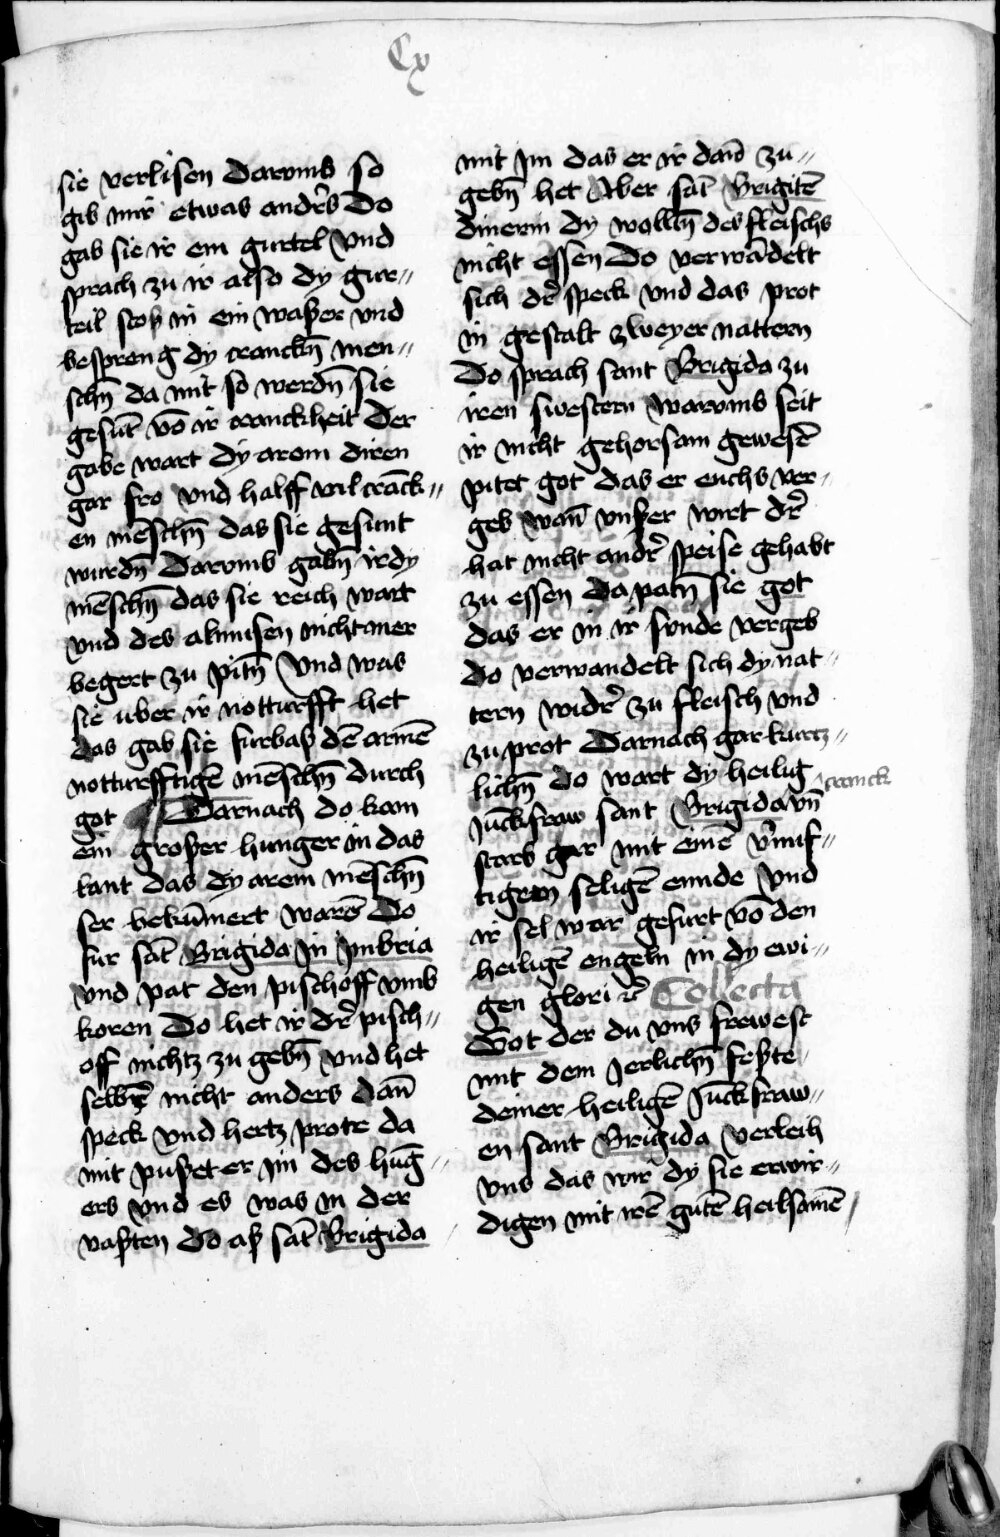 Cx
sie verlisen Darvmb so
gib mir etwas andrs̄ Do
gab sie ir ein gurtel vnd
sprach zu ir also dy gur〃
teil stoß in ein waßer vnd
bespreng dy cranckn̄ men〃
schn̄ da mit so werdn̄ sie
gesūt vō ir cranckheit Der
gabe wart dy arom diren
gar fro vnd halff vil crāck〃
en mēschn̄ das sie gesunt
wurdn̄ Darvmb gabn̄ ir dy
mēschn̄ das sie reich wart
vnd des almusen nicht mer
begert zu pitn̄ vnd was
sie vber ir notturfft het
das gab sie furbaß dē armē
notturfftigē mēschn̄ durch
got Darnach do kam
ein großer hunger in das
lant das dy arem mēschn̄
ser bekūmert warē Do
fur sāt Brigida in jmbria
vnd pat den pischoff vmb
koren Do het ir dr̄ pisch〃
off nichtz zu gebn̄ vnd het
selbē nicht anders dan̄
speck vnd hertz prote da
mit pußet er im des hūg〃
ers vnd es was in der
vaßten do aß sāt Brigida
mit jm das er ir dan̄ zu〃
gebn̄ het Aber sāt Brigitē
dinerin dy wolln̄ des fleischs
nicht essen Do verwādelt
sich dr̄ speck vnd das prot
in gestalt zweyer nattern
Do sprach sant Brigida zu
iren swestern Warvmb seit
ir nicht gehorsam gewesē
pitet got das er euchs ver〃
geb wan̄ vnßer wirt dr̄
hat nicht andr̄ speise gehabt
zu essen da patn̄ sie got
das er in ir sunde vergeb
do verwandelt sich dy nat〃
tern widr̄ zu fleisch vnd
zu prot Darnach gar kurtz〃
lichn̄ do wart dy heilig cranck
jūckfraw sant Brigida vn̄
starb gar mit einē v̄nuf〃
tigem seligē ennde vnd
ir sel war gefurt vō den
heiligē engeln in dy ewi〃
gen glori ꝛc̄ Collecta
Got der du vns frewest
mit dem jerlichn̄ feßte
deiner heiligē jūckfraw〃
en sant Brigida verleih
vns das wir dy sie erwir〃
digen mit irē gutē heilsamē